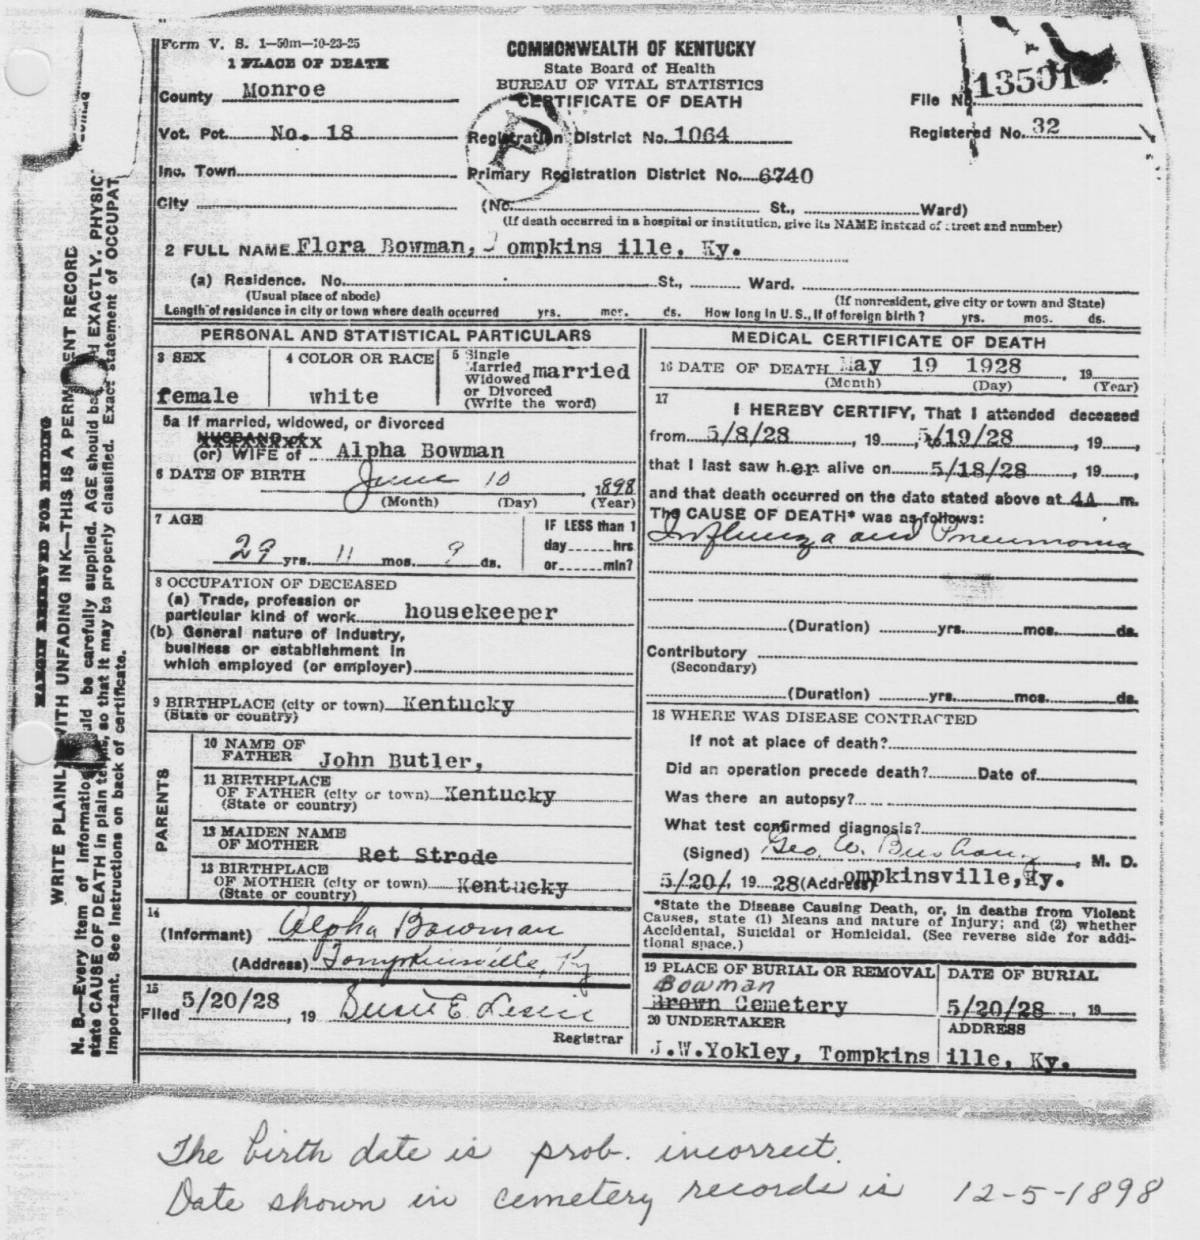 Form V. S. 1—50m—10-23-25
1 PLACE OF DEATH
County Monroe
Vot. Pct. No. 18
Inc. Town
City
COMMONWEALTH OF KENTUCKY
State Board of Health
BUREAU OF VITAL STATISTICS
CERTIFICATE OF DEATH
Registration District No. 1064
Primary Registration District No. 6740
(No. St., Ward)
(If death occurred in a hospital or institution, give its NAME instead of street and number)
File No. 13501
Registered No. 32
2 FULL NAME Flora Bowman, ompkins ille, Ky.
(a) Residence. No. St., Ward.
(Usual place of abode) (If nonresident, give city or town and State)
Length of residence in city or town where death occurred yrs. mos. ds. How long in U.S., if of foreign birth? yrs. mos. ds.
PERSONAL AND STATISTICAL PARTICULARS
3 SEX
female
4 COLOR OR RACE
white
5 Single
Married
Widowed
or Divorced
(Write the word)
married
5a If married, widowed, or divorced
HUSBAND of
(or) WIFE of Alpha Bowman
6 DATE OF BIRTH June 10, 1898
(Month) (Day) (Year)
7 AGE
29 yrs. 11 mos. 9 ds.
IF LESS than 1
day hrs
or min?
8 OCCUPATION OF DECEASED
(a) Trade, profession or
particular kind of work housekeeper
(b) General nature of industry,
business or establishment in
which employed (or employer)
9 BIRTHPLACE (city or town) Kentucky
(State or country)
PARENTS
10 NAME OF
FATHER John Butler,
11 BIRTHPLACE
OF FATHER (city or town) Kentucky
(State or country)
13 MAIDEN NAME
OF MOTHER Ret Strode
13 BIRTHPLACE
OF MOTHER (city or town) Kentucky
(State or country)
14
(Informant) Alpha Bowman
(Address) Tompkinsville, Ky
15
Filed 5/20/28, 19 Susie E.
Registrar
MEDICAL CERTIFICATE OF DEATH
16 DATE OF DEATH May 19 1928, 19
(Month) (Day) (Year)
17
I HEREBY CERTIFY, That I attended deceased
from 5/8/28, 19, 5/19/28, 19,
that I last saw her alive on 5/18/28, 19,
and that death occurred on the date stated above at 4A m.
The CAUSE OF DEATH* was as follows:
Influenza and Pneumonia
(Duration) yrs. mos. ds.
Contributory
(Secondary)
(Duration) yrs. mos. ds.
18 WHERE WAS DISEASE CONTRACTED
If not at place of death?
Did an operation precede death? Date of
Was there an autopsy?
What test confirmed diagnosis?
(Signed) Geo. W. Bushong, M. D.
5/20/, 19 28 (Address) ompkinsville, Ky.
*State the Disease Causing Death, or, in deaths from Violent
Causes, state (1) Means and nature of Injury; and (2) whether
Accidental, Suicidal or Homicidal. (See reverse side for addi-
tional space.)
19 PLACE OF BURIAL OR REMOVAL
Bowman
Brown Cemetery
DATE OF BURIAL
5/20/28, 19
20 UNDERTAKER ADDRESS
J.W.Yokley, Tompkins ille, Ky.
MARGIN RESERVED FOR BINDING
WRITE PLAINLY WITH UNFADING INK—THIS IS A PERMANENT RECORD
N. B.—Every item of information should be carefully supplied. AGE should be EXACTLY. PHYSIC
state CAUSE OF DEATH in plain terms, so that it may be properly classified. Exact statement of OCCUPAT
important. See instructions on back of certificate.
The birth date is prob. incorrect.
Date shown in cemetery records is 12-5-1898